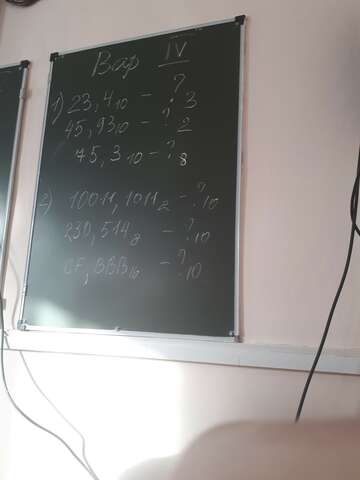 Вар IV
1) 23,4₁₀ - ?₃
45,93₁₀ - ?₂
75,3₁₀ - ?₈
2) 10011,1011₂ - ?₁₀
230,514₈ - ?₁₀
CF,BBB₁₆ - ?₁₀